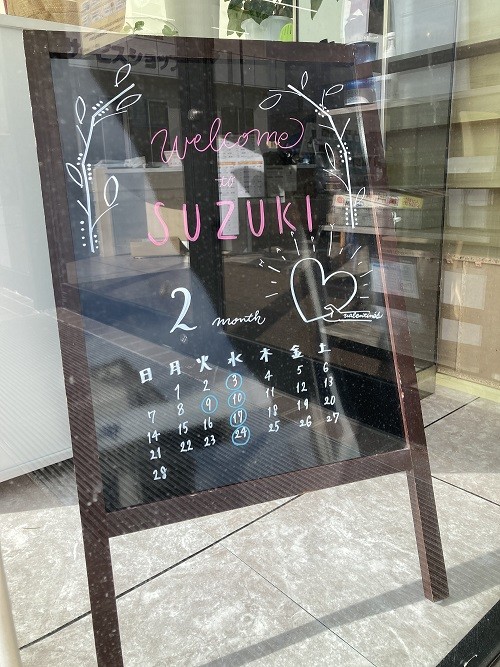 サービスショップ
Welcome
to
SUZUKI
2 month
valentine's
日 月 火 水 木 金 土
1 2 3 4 5 6
7 8 9 10 11 12 13
14 15 16 17 18 19 20
21 22 23 24 25 26 27
28